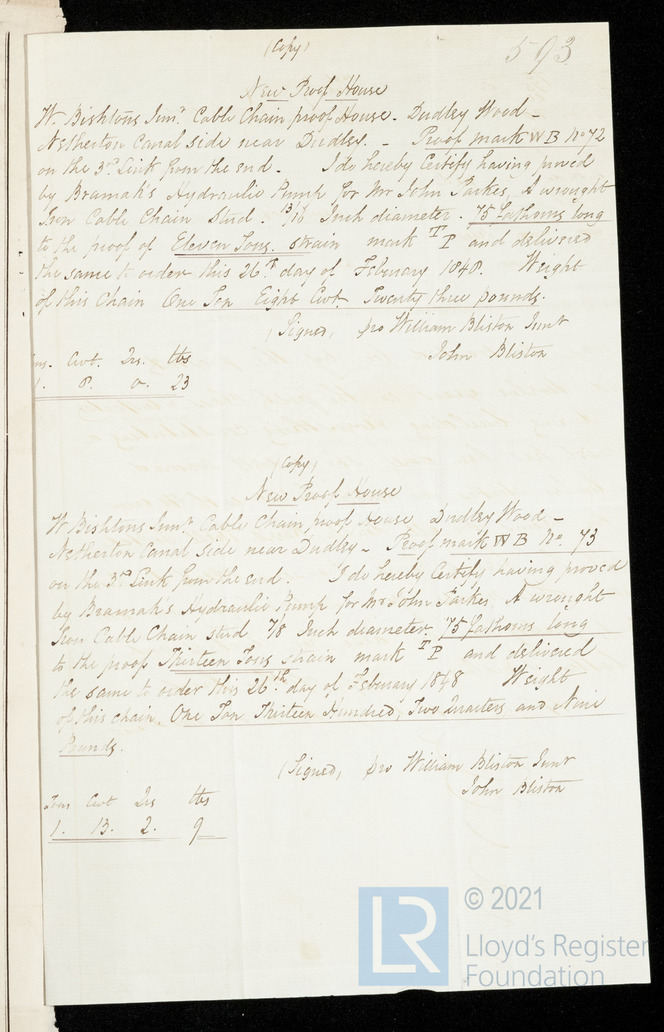 (Copy)
593
New Proof House
W. Bishtons Junr. Cable Chain proof House. Dudley Wood -
Netherton Canal side near Dudley. - Proof mark WB No 72
on the 3rd Link from the end. I do hereby Certify having proved
by Bramah's Hydraulic Pump for Mr John Parkes, A wrought
Iron Cable Chain Stud. 13/16 Inch diameter. 75 fathoms long
to the proof of Eleven Tons. strain mark TP and delivered
the same to order this 26th day of February 1848. Weight
of this Chain One Ton Eight Cwt. Twenty three pounds.
(Signed, pro William Bliston Junr
John Bliston
Cwt. Qrs. lbs
1. 8. 0. 23
(Copy)
New Proof House
W Bishtons Junr. Cable Chain, proof House Dudley Wood -
Netherton Canal Side near Dudley - Proof mark WB No. 73
on the 3rd Link from the end. I do hereby Certify having proved
by Bramah's Hydraulic Pump for Mr John Parkes A wrought
Iron Cable Chain stud 7/8 Inch diameter. 75 fathoms long
to the proof Thirteen Tons strain mark TP and delivered
the same to order this 26th day of February 1848 Weight
of this chain. One Ton Thirteen Hundred, Two Quarters and Nine
Pounds.
(Signed, pro William Bliston Junr
John Bliston
Tons Cwt Qrs lbs
1. 13. 2. 9
LR
© 2021
Lloyd's Register
Foundation